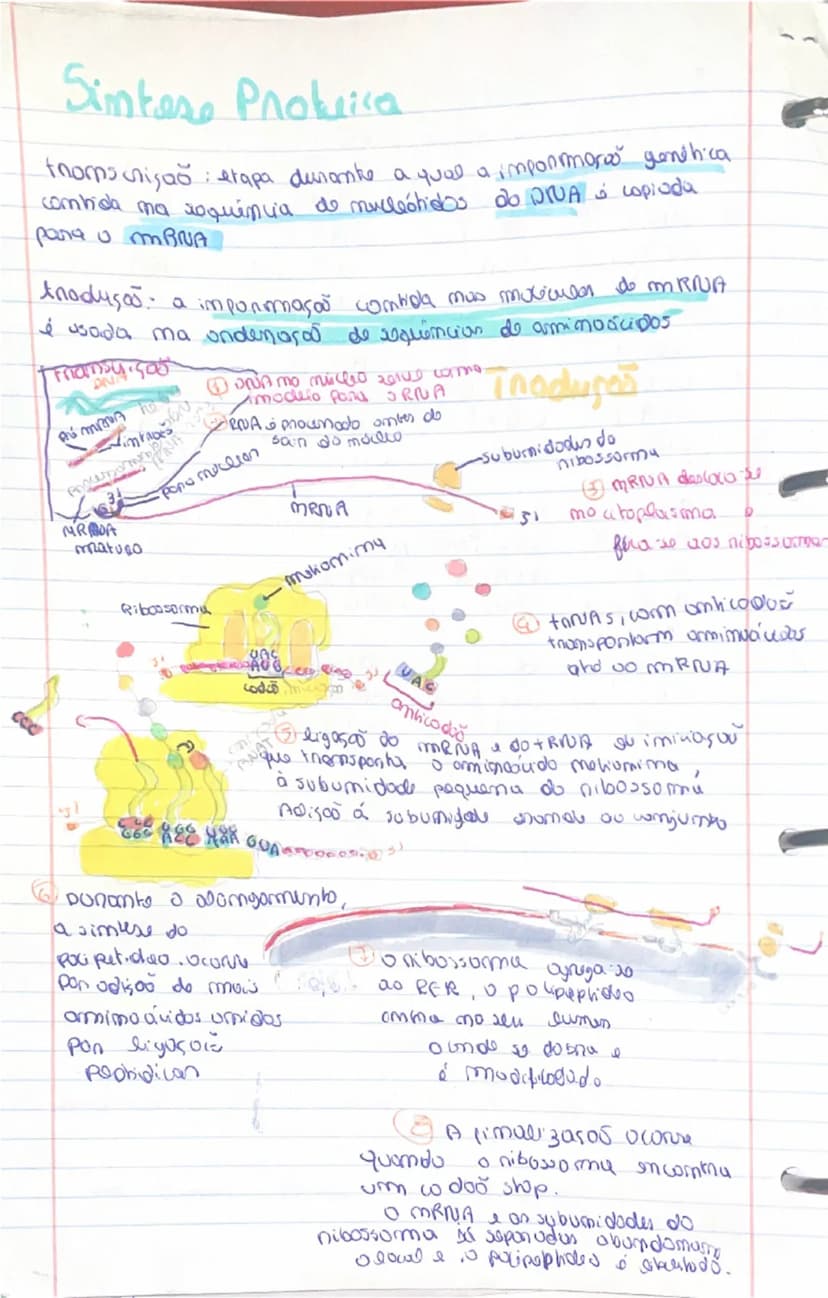 Síntese Proteica
transcrição: etapa durante a qual a informação genética
contida na sequência de nucleótidos do DNA é copiada
para o mRNA
tradução: a informação contida nas moléculas de mRNA
é usada na ordenação de sequências de aminoácidos
transcrição
DNA
① DNA no núcleo serve como
modelo para o RNA
Tradução
pré mRNA
intrões
② RNA é processado antes de
sair do núcleo
poro nuclear
mRNA
maturo
3'
mRNA
5'
subunidades do
ribossoma
③ mRNA desloca-se
no citoplasma e
fixa-se aos ribossomas
metionina
Ribossoma
UAC
AUG
codão
5'
3'
UAC
anticodão
④ tRNAs, com anticodão
transportam aminoácidos
até ao mRNA
⑤ ligação do mRNA e do tRNA de iniciação
que transporta o aminoácido metionina,
à subunidade pequena do ribossoma
Adição à subunidade grande ao conjunto
5'
GUA
3'
⑥ Durante o alongamento,
a síntese do
polipetideo ocorre
por adição de mais
aminoácidos unidos
por ligação
peptídicas
⑦ O ribossoma agrega-se
ao RER, o polipeptídeo
entra no seu lumen
onde se dobra e
é modificado
⑧ A finalização ocorre
quando o ribossoma encontra
um codão stop.
O mRNA e as subunidades do
ribossoma separadas abandonam
o local e o polipeptideo é